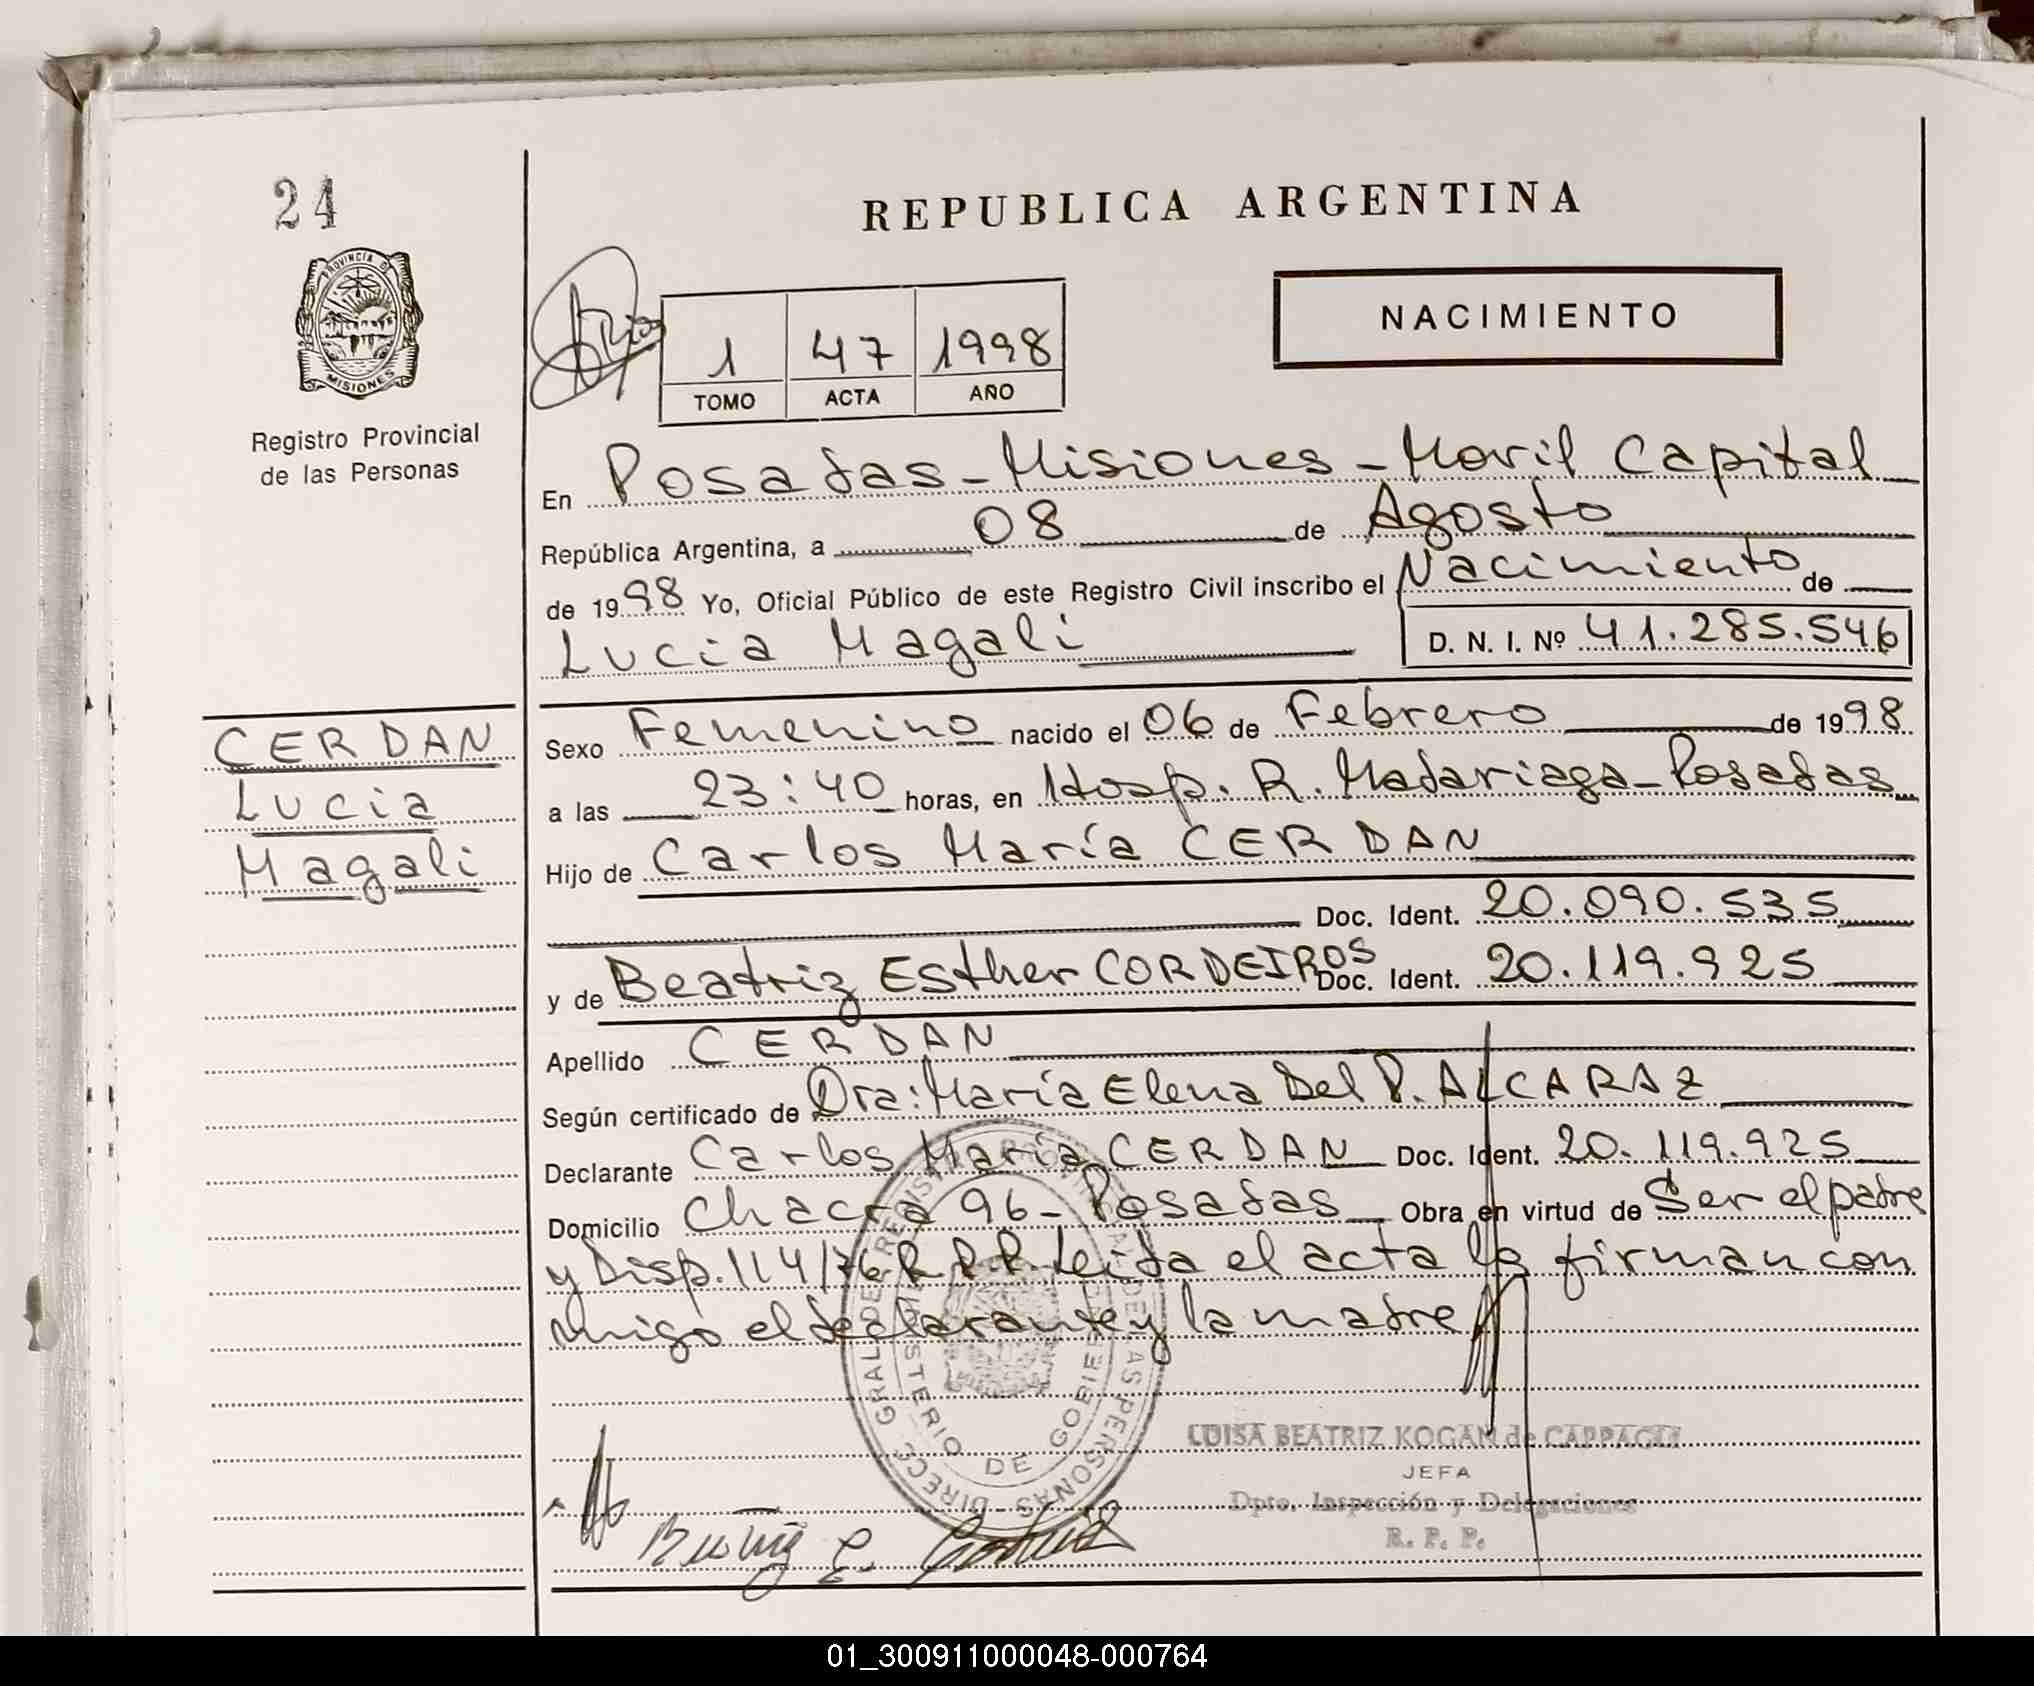 24
REPUBLICA ARGENTINA
PROVINCIA DE
MISIONES
Registro Provincial
de las Personas
1 47 1998
TOMO ACTA AÑO
NACIMIENTO
En Posadas - Misiones - Movil Capital
República Argentina, a 08 de Agosto
de 1998 Yo, Oficial Público de este Registro Civil inscribo el Nacimiento de
Lucia Magali D. N. I. Nº 41.285.546
CERDAN
Lucia
Magali
Sexo Femenino nacido el 06 de Febrero de 1998
a las 23:40 horas, en Hosp. R. Madariaga - Posadas
Hijo de Carlos María CERDAN
Doc. Ident. 20.090.535
y de Beatriz Esther CORDEIROS Doc. Ident. 20.119.925
Apellido CERDAN
Según certificado de Dra: María Elena Del P. ALCARAZ
Declarante Carlos María CERDAN Doc. Ident. 20.119.925
Domicilio Chacra 96 - Posadas Obra en virtud de Ser el padre
y Disp. 114/76 R.P.P. Leida el acta la firman con
migo el declarante y la madre
MINISTERIO DE GOBIERNO
LUISA BEATRIZ KOGAN de
JEFA
Dpto. Inspección y Delegaciones
R. P. P.
01_300911000048-000764